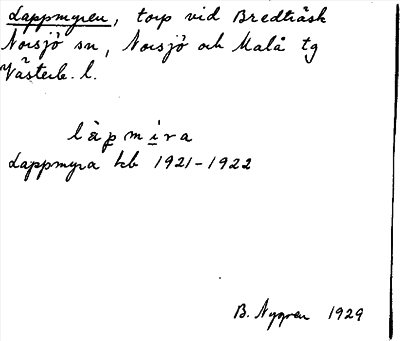 Lappmyren, torp vid Bredträsk
Norsjö sn, Norsjö och Malå tg
Västerb. l.
làpmira
Lappmyra kb 1921-1922
B. Nygren 1929